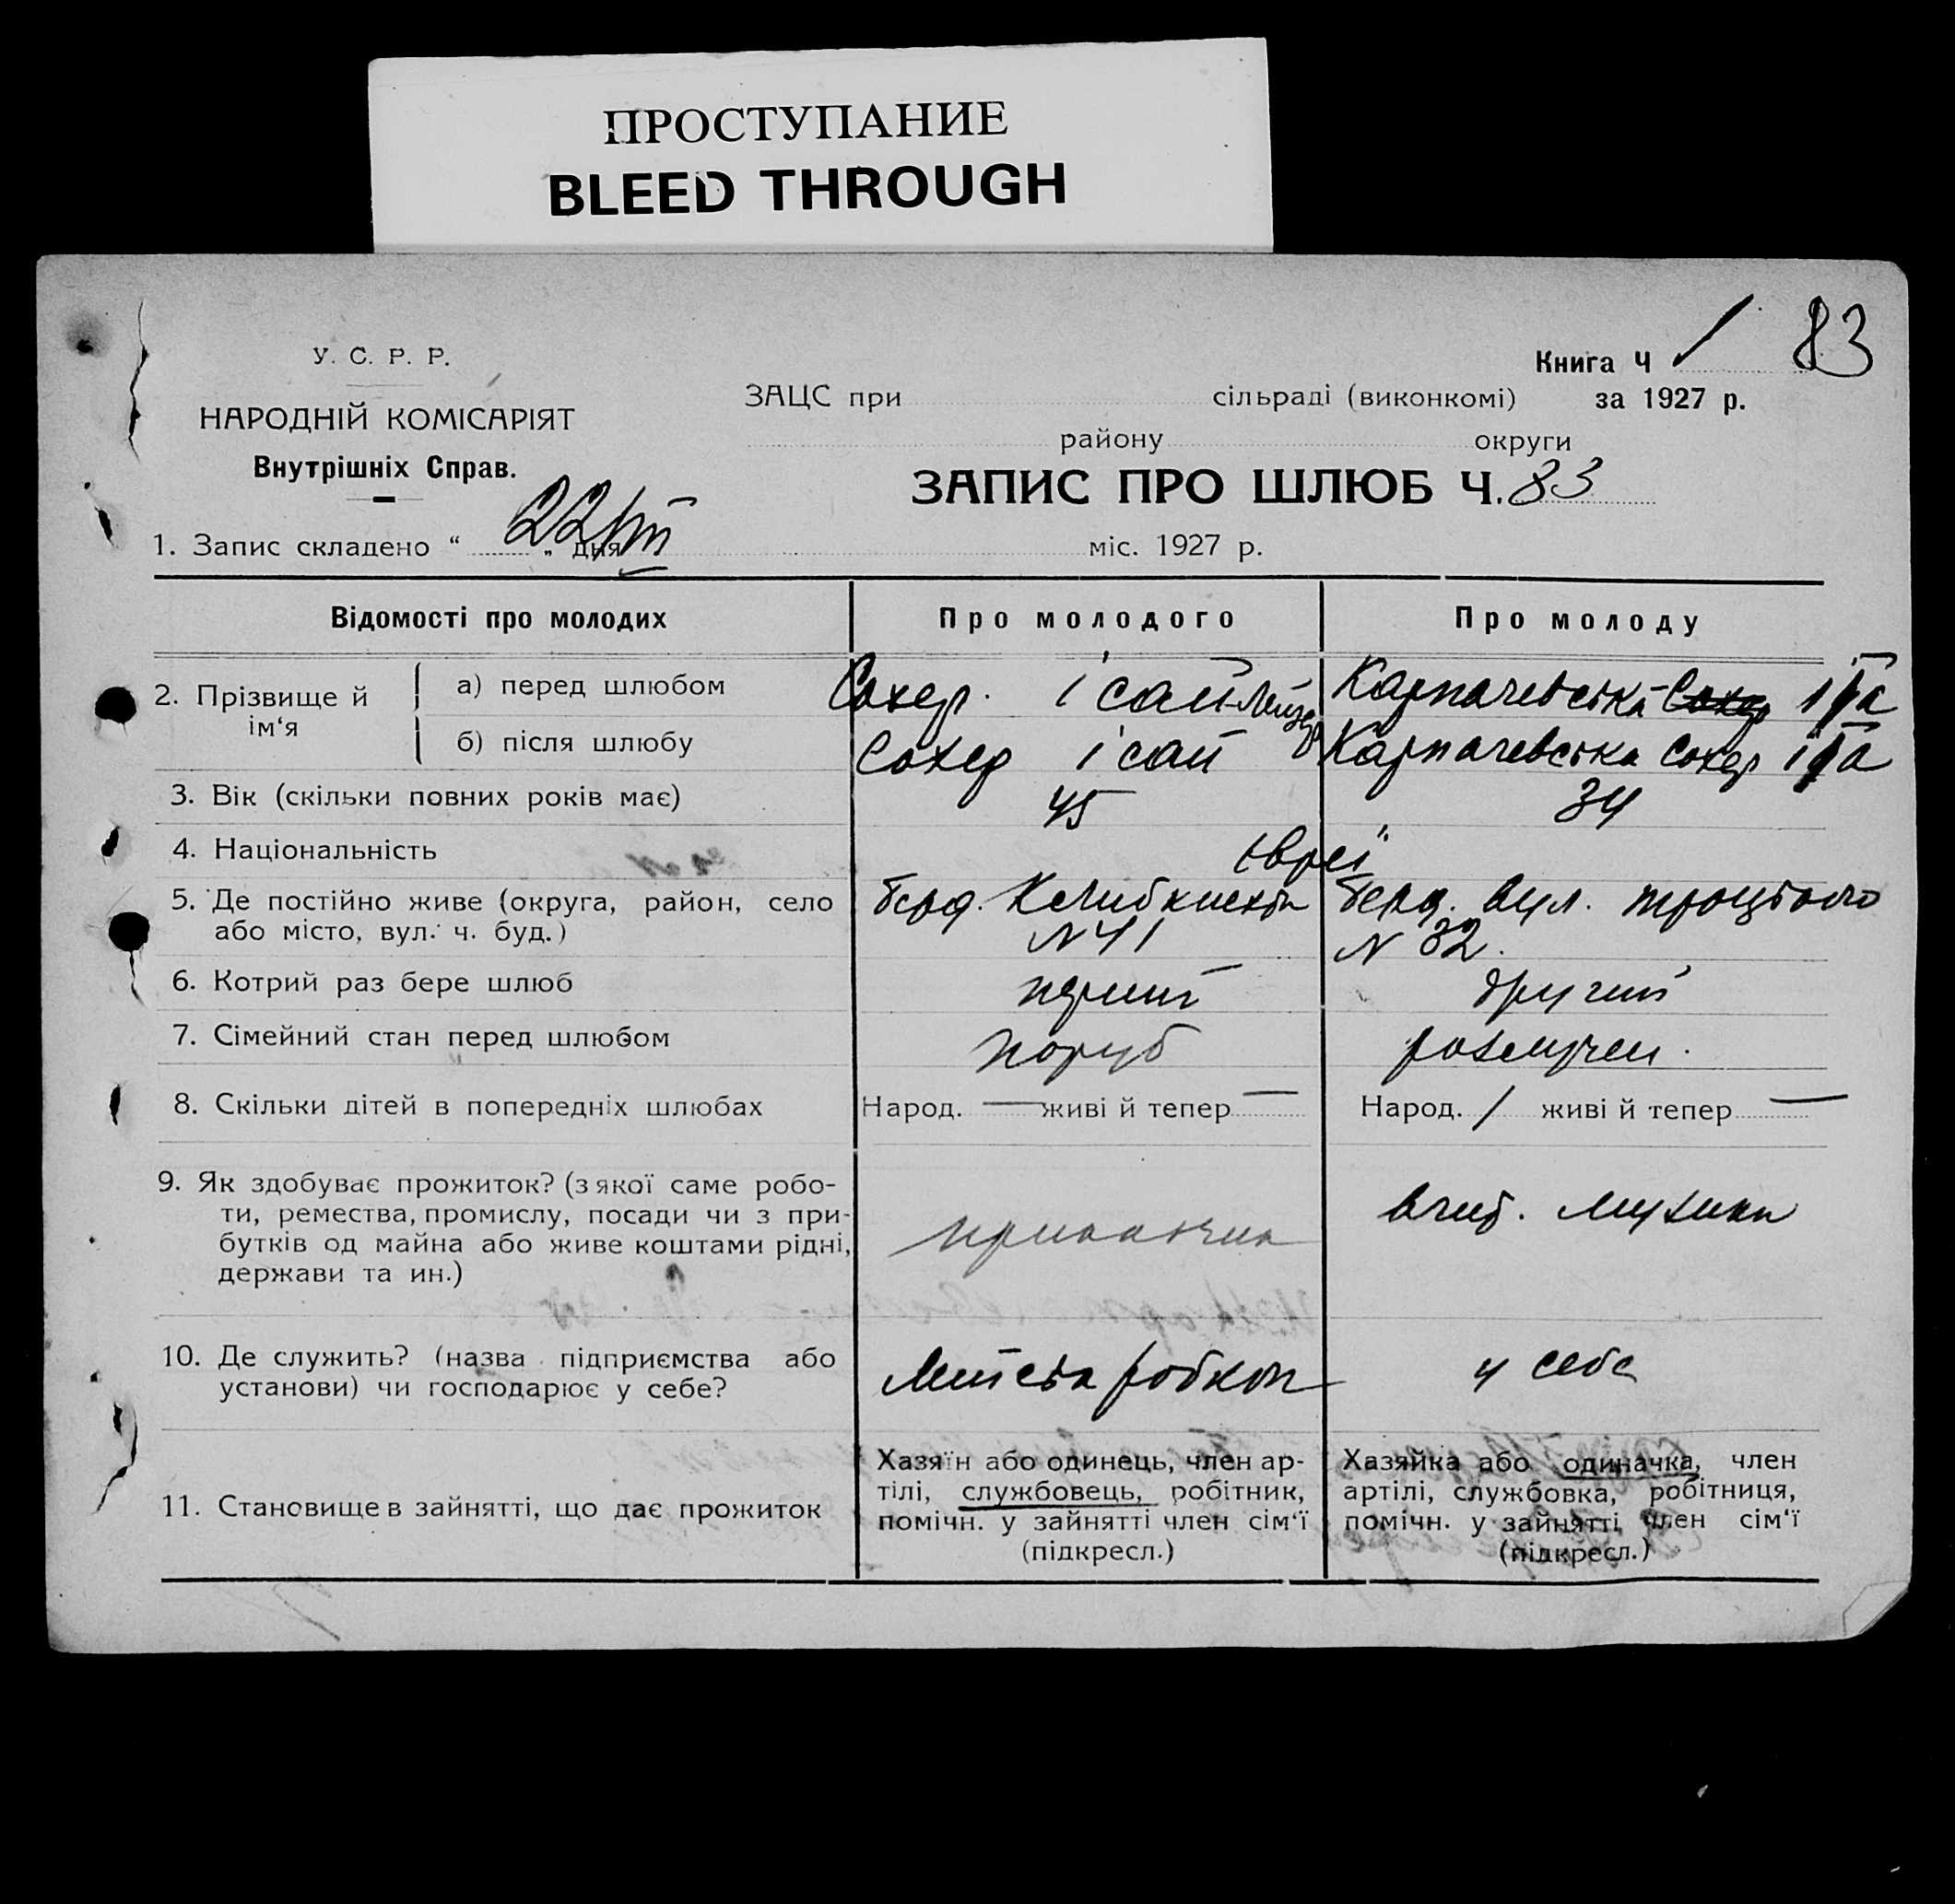 ПРОСТУПАНИЕ
BLEED THROUGH
У. С. Р. Р.
НАРОДНІЙ КОМІСАРІЯТ
Внутрішніх Справ.
Книга Ч 1 83
ЗАЦС при сільраді (виконкомі) за 1927 р.
району округи
ЗАПИС ПРО ШЛЮБ Ч. 83
1. Запис складено “ 22/III „ дня міс. 1927 р.
Відомості про молодих Про молодого Про молоду
2. Прізвище й ім‘я
а) перед шлюбом Сохер. Ісай-Лейзер Карпачевська-Сохер Іра
б) після шлюбу Сохер Ісай Карпачевська Сохер Іра
3. Вік (скільки повних років має) 45 34
4. Національність євреї
5. Де постійно живе (округа, район, село Берд. Берд. вул. Троцького
або місто, вул. ч. буд.) N 41 N 32.
6. Котрий раз бере шлюб перший другий
7. Сімейний стан перед шлюбом поруб
8. Скільки дітей в попередніх шлюбах Народ. — живі й тепер — Народ. / живі й тепер —
9. Як здобуває прожиток? (з якої саме робо-
ти, ремества, промислу, посади чи з при- вчит. музики
бутків од майна або живе коштами рідні,
держави та ин.)
10. Де служить? (назва підприємства або робкоп у себе
установи) чи господарює у себе?
11. Становище в зайнятті, що дає прожиток
Хазяїн або одинець, член ар-
тілі, службовець, робітник,
помічн. у зайнятті член сім‘ї
(підкресл.)
Хазяйка або одиначка, член
артілі, службовка, робітниця,
помічн. у зайнятті член сім‘ї
(підкресл.)